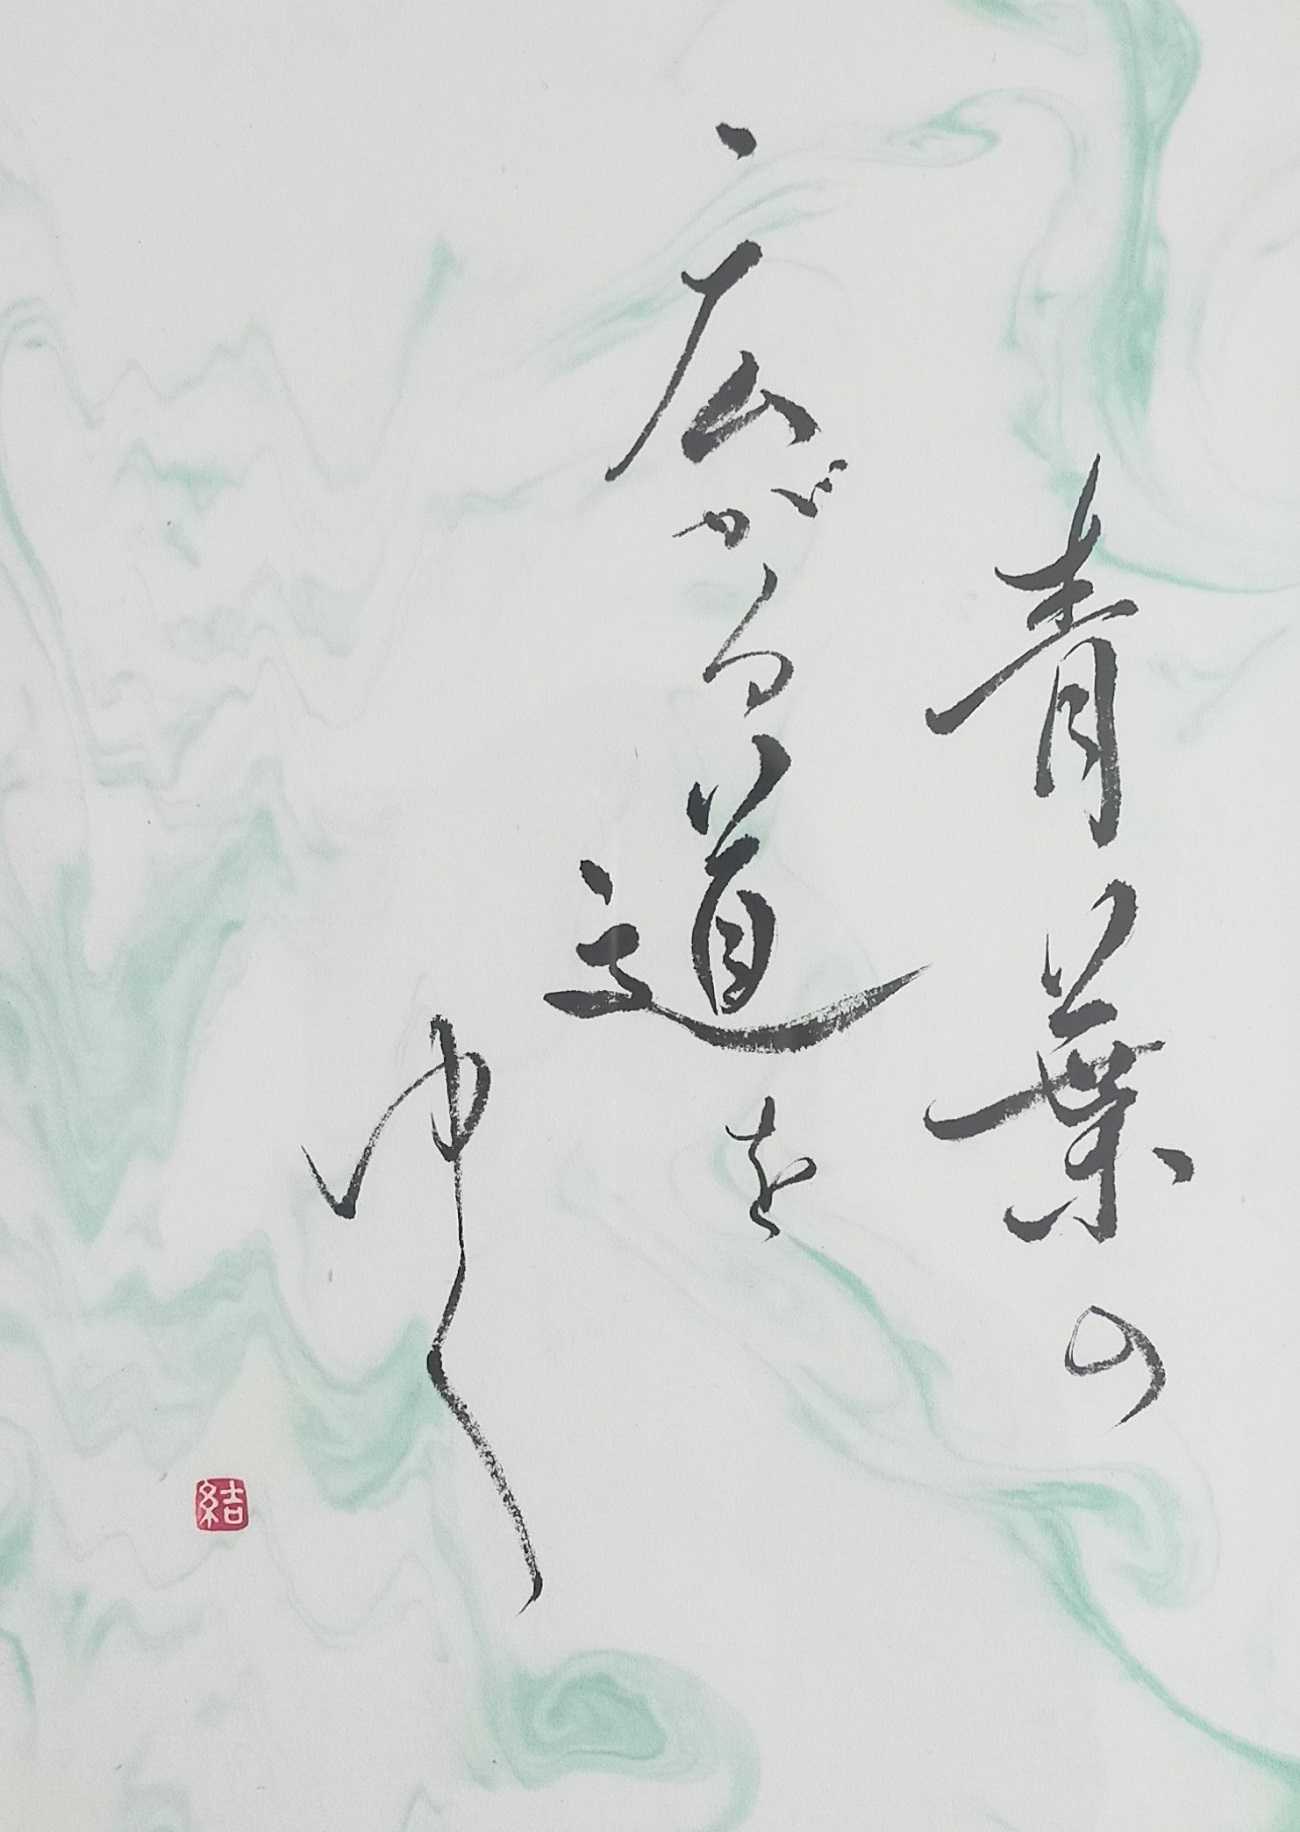 青葉の
広がる道を
ゆく
結